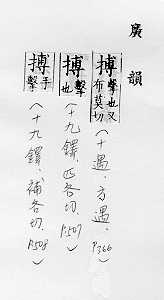 廣韻
搏 擊也又布莫切（十遇、方遇、P366）
搏 擊也（十九鐸、匹各切、P507）
搏 手擊（十九鐸、補各切、P508）